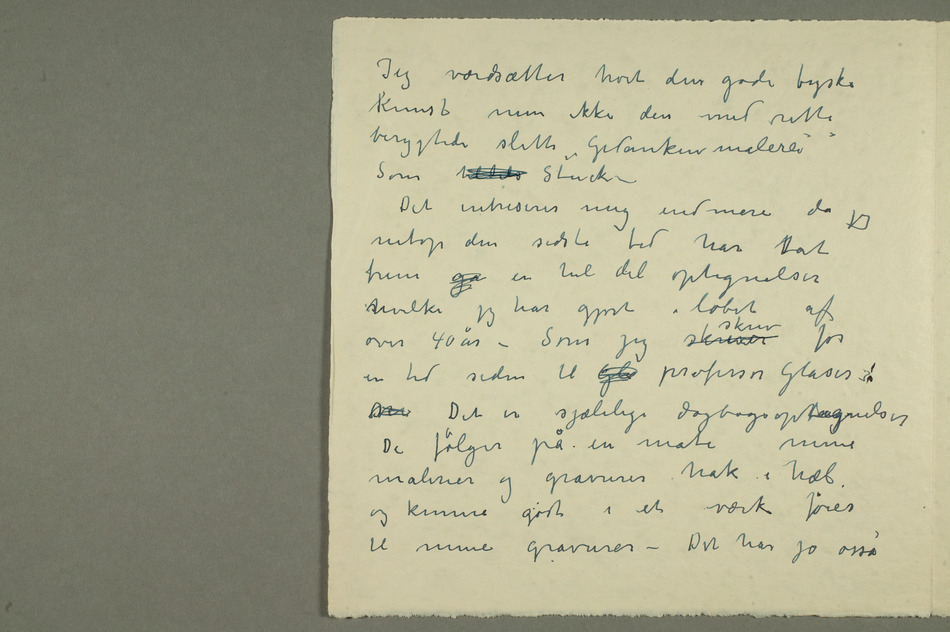 Jeg værdsætter høit den gode tyske
Kunst men ikke den med rette
berygtede slette „Gedankenmalerei”
Som Stucken
Det intreserer mig endmere da jeg
netop den sidste tid har tat
frem en hel del optegnelser
hvilke jeg har gjort i løbet af
over 40 år – Som jeg skrev for
en tid siden til professor Glaser:
Det er sjælelige dagbogsoptegnelser
De følger på en måte mine
malerier og gravurer hak i hæl.
og kunne godt i et værk føies
til mine gravurer – Det har jo osså